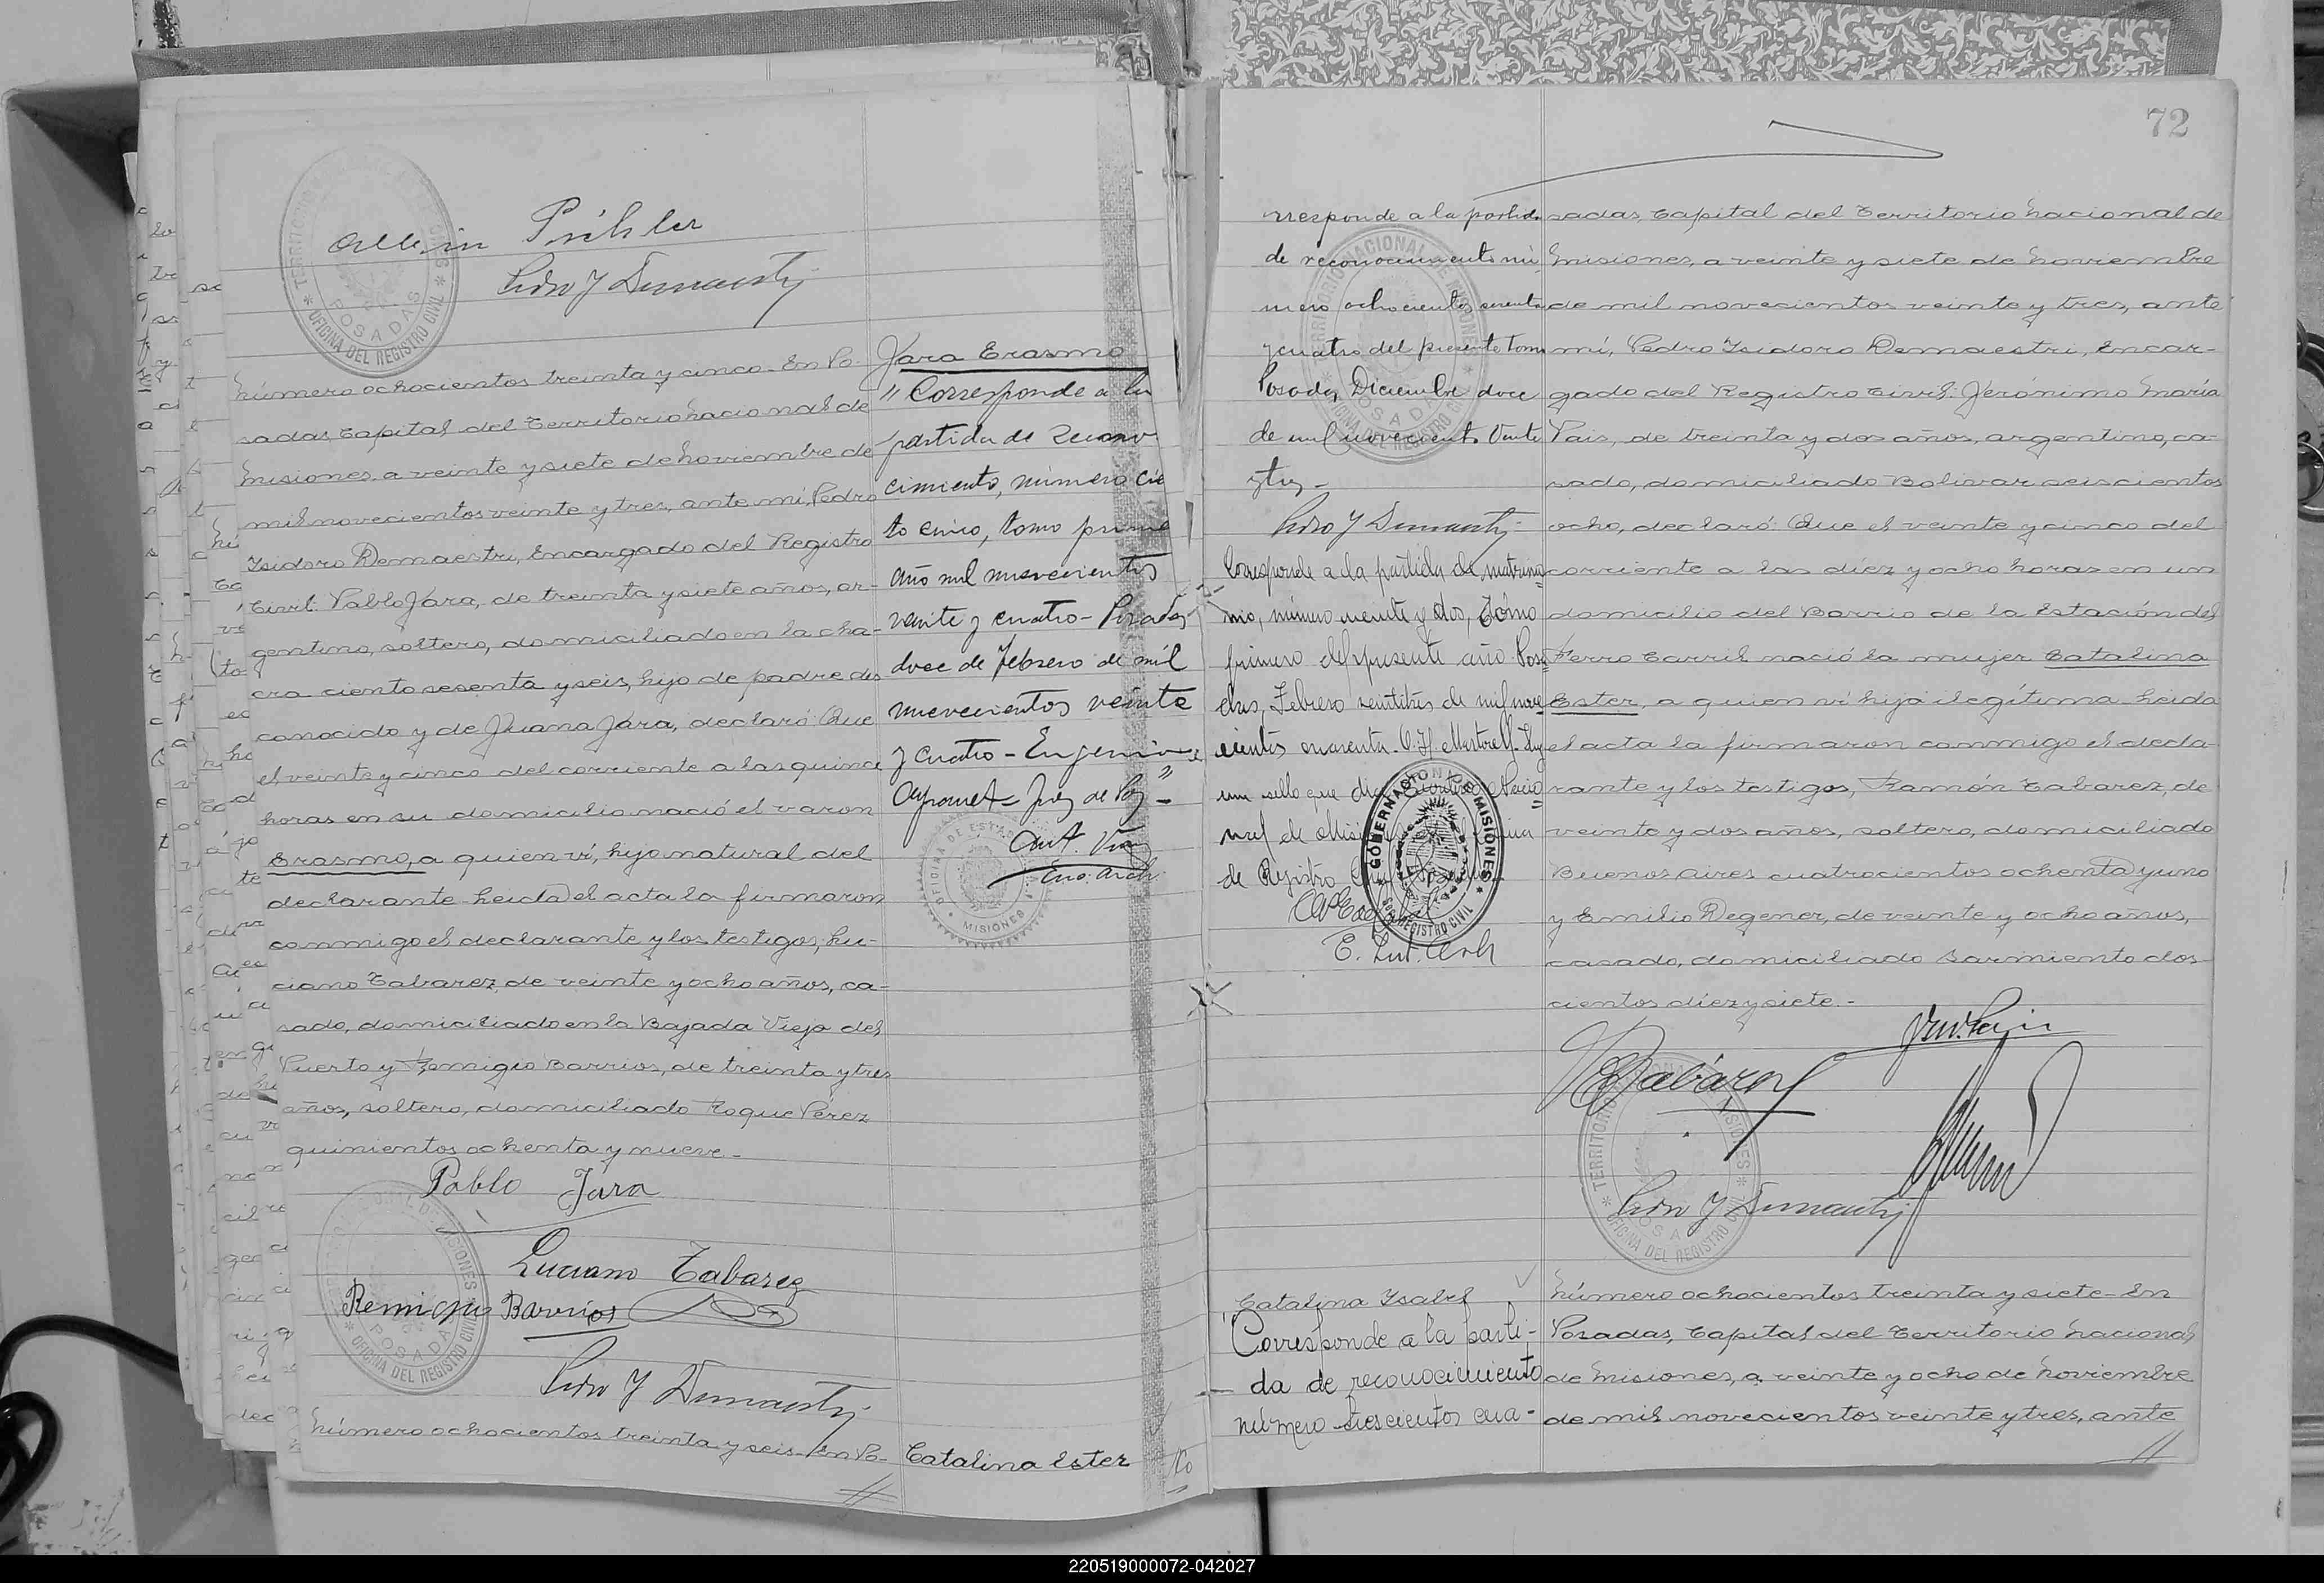 Pedro Y Demaestri
Número ochocientos treinta y cinco - En Po-
sadas, Capital del Territorio Nacional de
Misiones, a veinte y siete de Noviembre de
mil novecientos veinte y tres, ante mí, Pedro
Isidoro Demaestri, Encargado del Registro
Civil: Pablo Jara, de treinta y siete años, ar-
gentino, soltero, domiciliado en la cha-
cra ciento sesenta y seis, hijo de padre des
conocido y de Juana Jara, declaró: Que
el veinte y cinco del corriente a las quince
horas en su domicilio nació el varon
Erasmo, a quien ví, hijo natural del
declarante - Leida el acta la firmaron
conmigo el declarante y los testigos, Lu-
ciano Tabarez, de veinte y ocho años, ca-
sado, domiciliado en la Bajada Vieja del
Puerto y Remigio Barrios, de treinta y tres
años, soltero, domiciliado Roque Pérez
quinientos ochenta y nueve.-
Pablo Jara
Luciano Tabarez
Remigio Barrios
Pedro Y Demaestri
Número ochocientos treinta y seis - En Po-
Jara Erasmo
" Corresponde a la
partida de recono
cimiento, número cie
to cinco, tomo prime
año mil nuevecientos
veinte y cuatro - Posadas
doce de Febrero de mil
nuevecientos veinte
y cuatro - Eugenio
Juez de Paz - "
Enc. Arch
OFICINA DE ESTAD
MISIONES
Catalina Ester
Co
TERRITORIO NACIONAL DE MISIONES
POSADAS
OFICINA DEL REGISTRO CIVIL
72
rresponde a la partida
de reconocimiento nú
mero ochocientos
y cuatro del presente tomo
Posadas, Diciembre doce
de mil novecientos Veinte
y tres -
Pedro Y Demaestri
Corresponde a la partida de matrimo=
nio, número veinte y dos, Tomo
primero del presente año. Posa=
das, Febrero veintitrés de mil nove=
cientos cuarenta. Hay
un sello que dice Nacio=
nal de Misiones
de Registro Civil
E. Arch
GOBERNACION DE MISIONES
REGISTRO CIVIL
sadas, Capital del Territorio Nacional de
Misiones, a veinte y siete de Noviembre
de mil novecientos veinte y tres, ante
mí, Pedro Isidoro Demaestri, Encar-
gado del Registro Civil: Jerónimo María
Pais, de treinta y dos años, argentino, ca-
sado, domiciliado Bolivar seiscientos
ocho, declaró: Que el veinte y cinco del
corriente a las diez y ocho horas en un
domicilio del Barrio de la Estación del
Ferro Carril nació la mujer Catalina
Ester, a quien ví hija ilegítima - Leida
el acta la firmaron conmigo el decla-
rante y los testigos, Ramón Tabarez, de
veinte y dos años, soltero, domiciliado
Buenos Aires cuatrocientos ochenta y uno
y Emilio Degener, de veinte y ocho años,
casado, domiciliado Sarmiento dos
cientos diez y siete.-
Tabárez
Pedro Y Demaestri
Catalina Isabel
Corresponde a la parti-
da de reconocimiento
número trescientos cua-
Número ochocientos treinta y siete - En
Posadas, Capital del Territorio Nacional
de Misiones, a veinte y ocho de Noviembre
de mil novecientos veinte y tres, ante
220519000072-042027